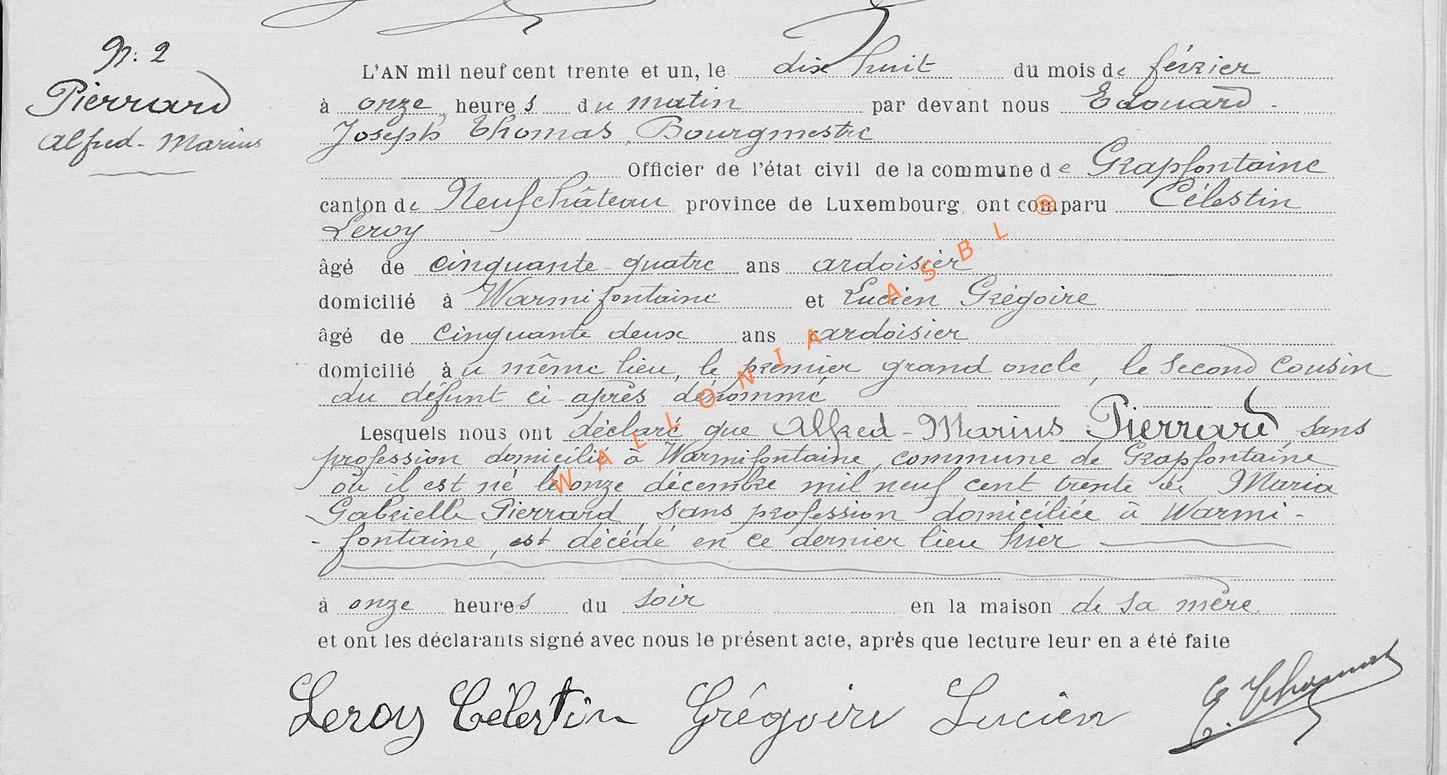 N: 2
Pierrard
Alfred-Marius
L'AN mil neuf cent trente et un, le dix huit du mois de février
à onze heures du matin par devant nous Edouard -
Joseph Thomas, Bourgmestre
Officier de l'état civil de la commune de Grapfontaine
canton de Neufchâteau province de Luxembourg ont comparu Célestin
Leroy
âgé de cinquante-quatre ans ardoisier
domicilié à Warmifontaine et Lucien Grégoire
âgé de cinquante deux ans ardoisier
domicilié au même lieu, le premier grand oncle, le second cousin
du défunt ci-après dénommé
Lesquels nous ont déclaré que Alfred-Marius Pierrard, sans
profession domicilié à Warmifontaine, commune de Grapfontaine
où il est né le onze décembre mil neuf cent trente de Maria
Gabrielle Pierrard, sans profession domiciliée à Warmi-
-fontaine, est décédé en ce dernier lieu hier
à onze heures du soir en la maison de sa mère
et ont les déclarants signé avec nous le présent acte, après que lecture leur en a été faite
Leroy Célestin Grégoire Lucien E. Thomas
WALLONIA ASBL ®